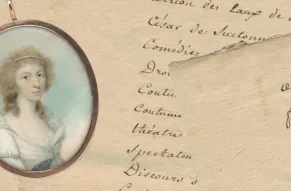 des
César de Suetonn
Comédies
Dro
Coutu
Coutume
théatre
Spectateu
Discours s